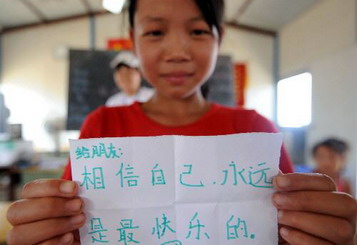 给朋友:
相信自己.永远
是最快乐的.